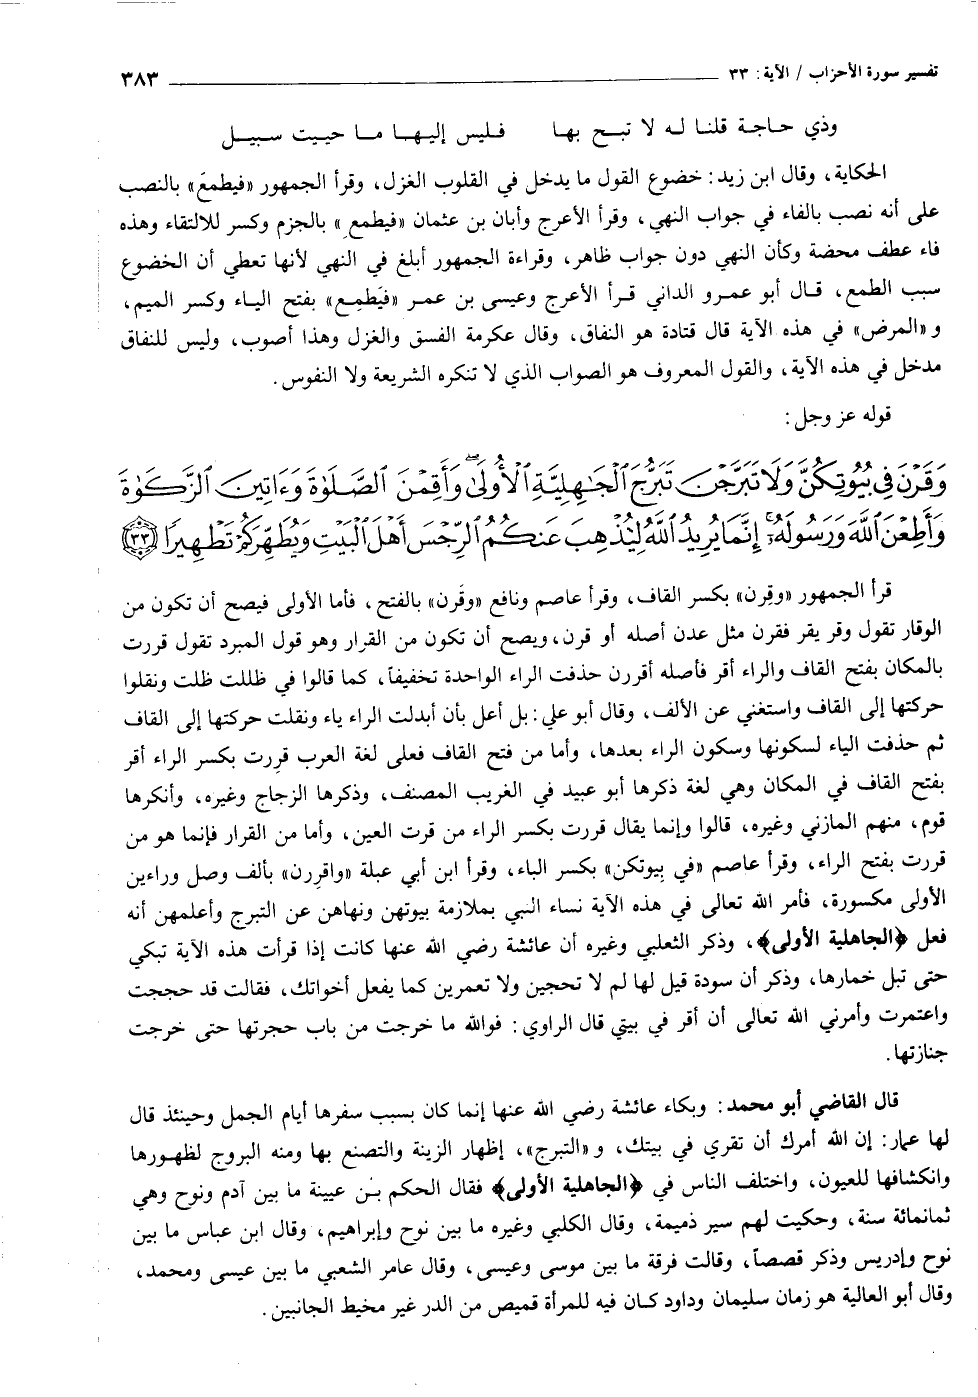 تفسير سورة الأحزاب / الآية: ٣٣ ٣٨٣
وذي حاجة قلنا له لا تبح بها فليس إليها ما حييت سبيل
الحكاية، وقال ابن زيد: خضوع القول ما يدخل في القلوب الغزل، وقرأ الجمهور «فيطمعَ» بالنصب
على أنه نصب بالفاء في جواب النهي، وقرأ الأعرج وأبان بن عثمان «فيطمعِ» بالجزم وكسر للالتقاء وهذه
فاء عطف محضة وكأن النهي دون جواب ظاهر، وقراءة الجمهور أبلغ في النهي لأنها تعطي أن الخضوع
سبب الطمع، قال أبو عمرو الداني قرأ الأعرج وعيسى بن عمر «فيَطمِع» بفتح الياء وكسر الميم،
و«المرض» في هذه الآية قال قتادة هو النفاق، وقال عكرمة الفسق والغزل وهذا أصوب، وليس للنفاق
مدخل في هذه الآية، والقول المعروف هو الصواب الذي لا تنكره الشريعة ولا النفوس.
قوله عز وجل:
وَقَرْنَ فِي بُيُوتِكُنَّ وَلَا تَبَرَّجْنَ تَبَرُّجَ ٱلْجَٰهِلِيَّةِ ٱلْأُولَىٰۖ وَأَقِمْنَ ٱلصَّلَوٰةَ وَءَاتِينَ ٱلزَّكَوٰةَ
وَأَطِعْنَ ٱللَّهَ وَرَسُولَهُۥٓۚ إِنَّمَا يُرِيدُ ٱللَّهُ لِيُذْهِبَ عَنكُمُ ٱلرِّجْسَ أَهْلَ ٱلْبَيْتِ وَيُطَهِّرَكُمْ تَطْهِيرًا ٣٣
قرأ الجمهور «وقِرن» بكسر القاف، وقرأ عاصم ونافع «وقَرن» بالفتح، فأما الأولى فيصح أن تكون من
الوقار تقول وقر يقر فقرن مثل عدن أصله أو قرن، ويصح أن تكون من القرار وهو قول المبرد تقول قررت
بالمكان بفتح القاف والراء أقر فأصله أقررن حذفت الراء الواحدة تخفيفاً، كما قالوا في ظللت ظلت ونقلوا
حركتها إلى القاف واستغني عن الألف، وقال أبو علي: بل أعل بأن أبدلت الراء ياء ونقلت حركتها إلى القاف
ثم حذفت الياء لسكونها وسكون الراء بعدها، وأما من فتح القاف فعلى لغة العرب قرِرت بكسر الراء أقر
بفتح القاف في المكان وهي لغة ذكرها أبو عبيد في الغريب المصنف، وذكرها الزجاج وغيره، وأنكرها
قوم، منهم المازني وغيره، قالوا وإنما يقال قررت بكسر الراء من قرت العين، وأما من القرار فإنما هو من
قررت بفتح الراء، وقرأ عاصم «في بِيوتكن» بكسر الباء، وقرأ ابن أبي عبلة «واقرِرن» بألف وصل وراءين
الأولى مكسورة، فأمر الله تعالى في هذه الآية نساء النبي بملازمة بيوتهن ونهاهن عن التبرج وأعلمهن أنه
فعل ﴿الجاهلية الأولى﴾، وذكر الثعلبي وغيره أن عائشة رضي الله عنها كانت إذا قرأت هذه الآية تبكي
حتى تبل خمارها، وذكر أن سودة قيل لها لم لا تحجين ولا تعمرين كما يفعل أخواتك، فقالت قد حججت
واعتمرت وأمرني الله تعالى أن أقر في بيتي قال الراوي: فوالله ما خرجت من باب حجرتها حتى خرجت
جنازتها.
قال القاضي أبو محمد: وبكاء عائشة رضي الله عنها إنما كان بسبب سفرها أيام الجمل وحينئذ قال
لها عمار: إن الله أمرك أن تقري في بيتك، و«التبرج»، إظهار الزينة والتصنع بها ومنه البروج لظهورها
وانكشافها للعيون، واختلف الناس في ﴿الجاهلية الأولى﴾ فقال الحكم بن عيينة ما بين آدم ونوح وهي
ثمانمائة سنة، وحكيت لهم سير ذميمة، وقال الكلبي وغيره ما بين نوح وإبراهيم، وقال ابن عباس ما بين
نوح وإدريس وذكر قصصاً، وقالت فرقة ما بين موسى وعيسى، وقال عامر الشعبي ما بين عيسى ومحمد،
وقال أبو العالية هو زمان سليمان وداود كان فيه للمرأة قميص من الدر غير مخيط الجانبين.